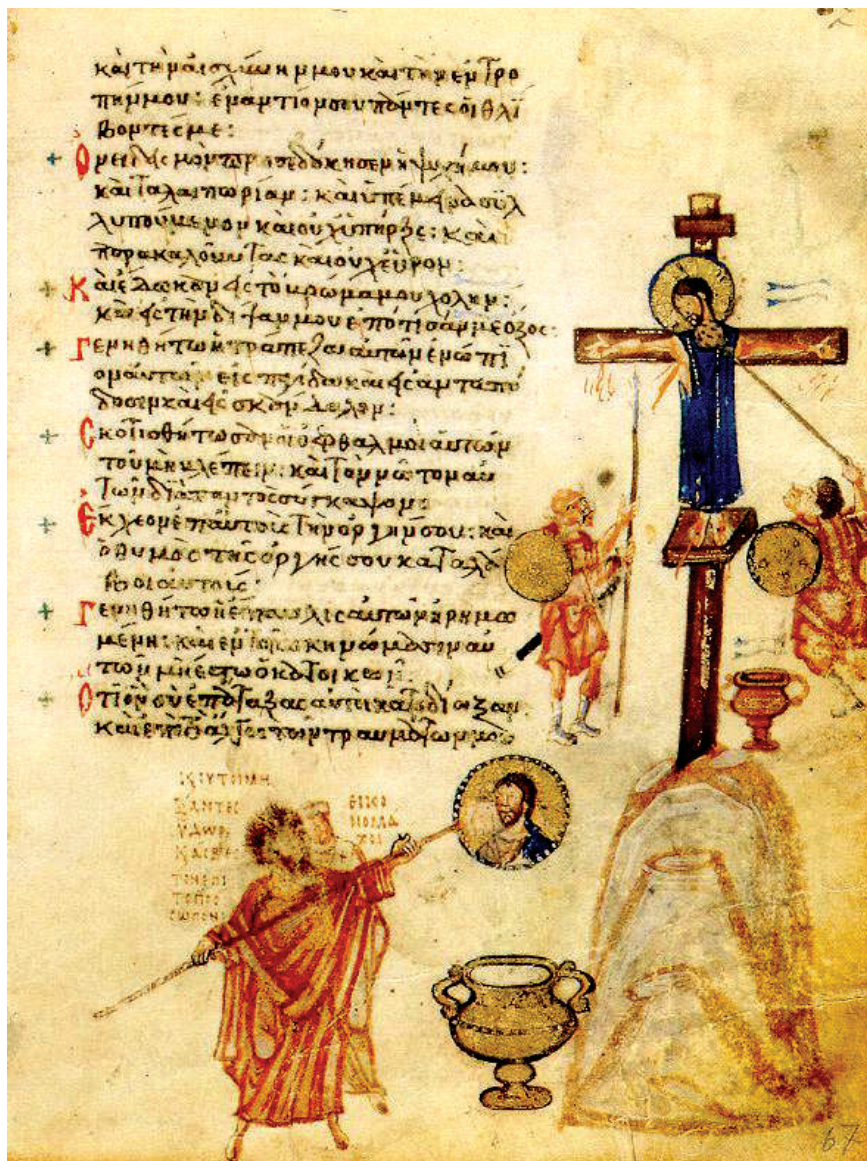 καὶ τὴν αἰσχύνην μου καὶ τὴν ἐντρο
πήν μου : ἐναντίον σου πάντες οἱ θλί
βοντές με :
Ὀνειδισμὸν προσεδόκησεν ἡ ψυχή μου :
καὶ ταλαιπωρίαν : καὶ ὑπέμεινα συλ
λυπούμενον καὶ οὐχ ὑπῆρξε : καὶ
παρακαλοῦντας καὶ οὐχ εὗρον :
Καὶ ἔδωκαν εἰς τὸ βρῶμά μου χολήν :
καὶ εἰς τὴν δίψαν μου ἐπότισάν με ὄξος :
Γενηθήτω ἡ τράπεζα αὐτῶν ἐνώπι
ον αὐτῶν εἰς παγίδα καὶ εἰς ἀνταπό
δοσιν καὶ εἰς σκάνδαλον :
Σκοτισθήτωσαν οἱ ὀφθαλμοὶ αὐτῶν
τοῦ μὴ βλέπειν : καὶ τὸν νῶτον αὐ
τῶν διὰ παντὸς σύγκαμψον :
Ἔκχεον ἐπ' αὐτοὺς τὴν ὀργήν σου : καὶ
ὁ θυμὸς τῆς ὀργῆς σου καταλά
βοι αὐτούς :
Γενηθήτω ἡ ἔπαυλις αὐτῶν ἠρημω
μένη : καὶ ἐν τοῖς σκηνώμασιν αὐ
τῶν μὴ ἔστω ὁ κατοικῶν :
Ὅτι ὃν σὺ ἐπάταξας αὐτοὶ κατεδίωξαν
καὶ ἐπὶ τὸ ἄλγος τῶν τραυμάτων μου
ΞΑΝΤΕΣ
ΥΔΩΡ
ΕΙΚΟ
ΝΟΜΑ
ΧΟΙ
67